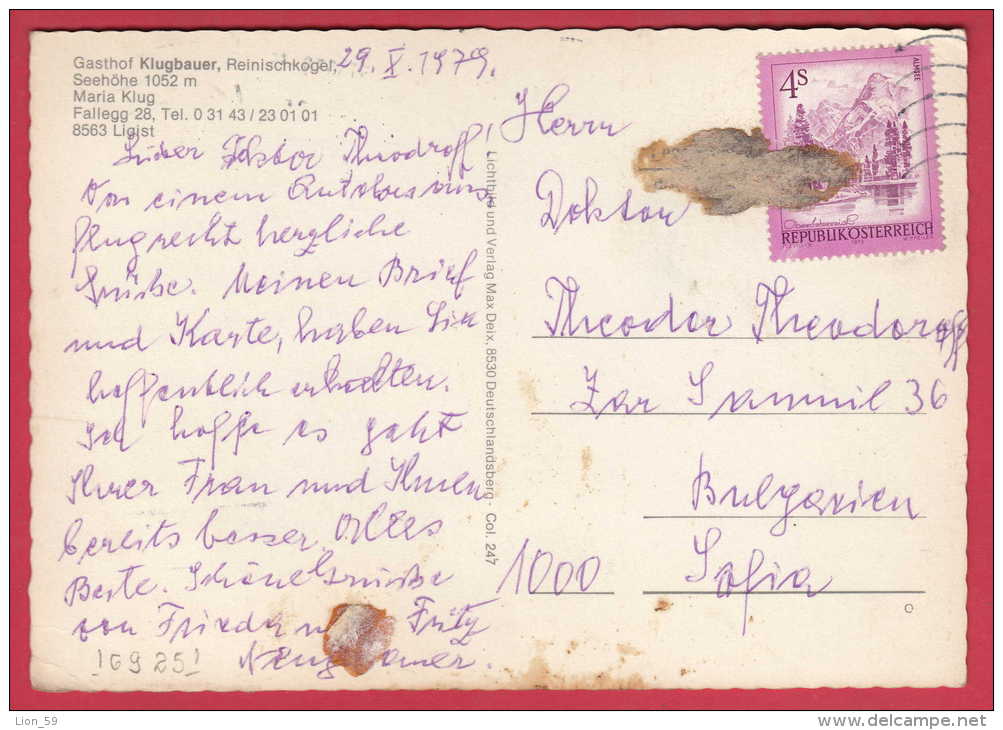 Gasthof Klugbauer, Reinischkogel,
Seehöhe 1052 m
Maria Klug
Fallegg 28, Tel. 0 31 43 / 23 01 01
8563 Ligist
29. X. 1979.
Lieber Doktor Theodroff!
Von einem
recht herzliche
Grüße. Meinen Brief
und Karte, haben Sie
hoffentlich erhalten.
Ich hoffe es geht
Ihrer Frau und Ihnen
bereits besser Alles
Beste. Schöne Grüße
von Frieda Fritz
!6925!
Lichtbild und Verlag Max Deix, 8530 Deutschlandsberg - Col. 247
Herrn
Doktor
Theodor Theodoroff
Zar Samuil 36
Bulgarien
1000 Sofia
4S
ALMSEE
REPUBLIK ÖSTERREICH
Lion_59
delcampe.net